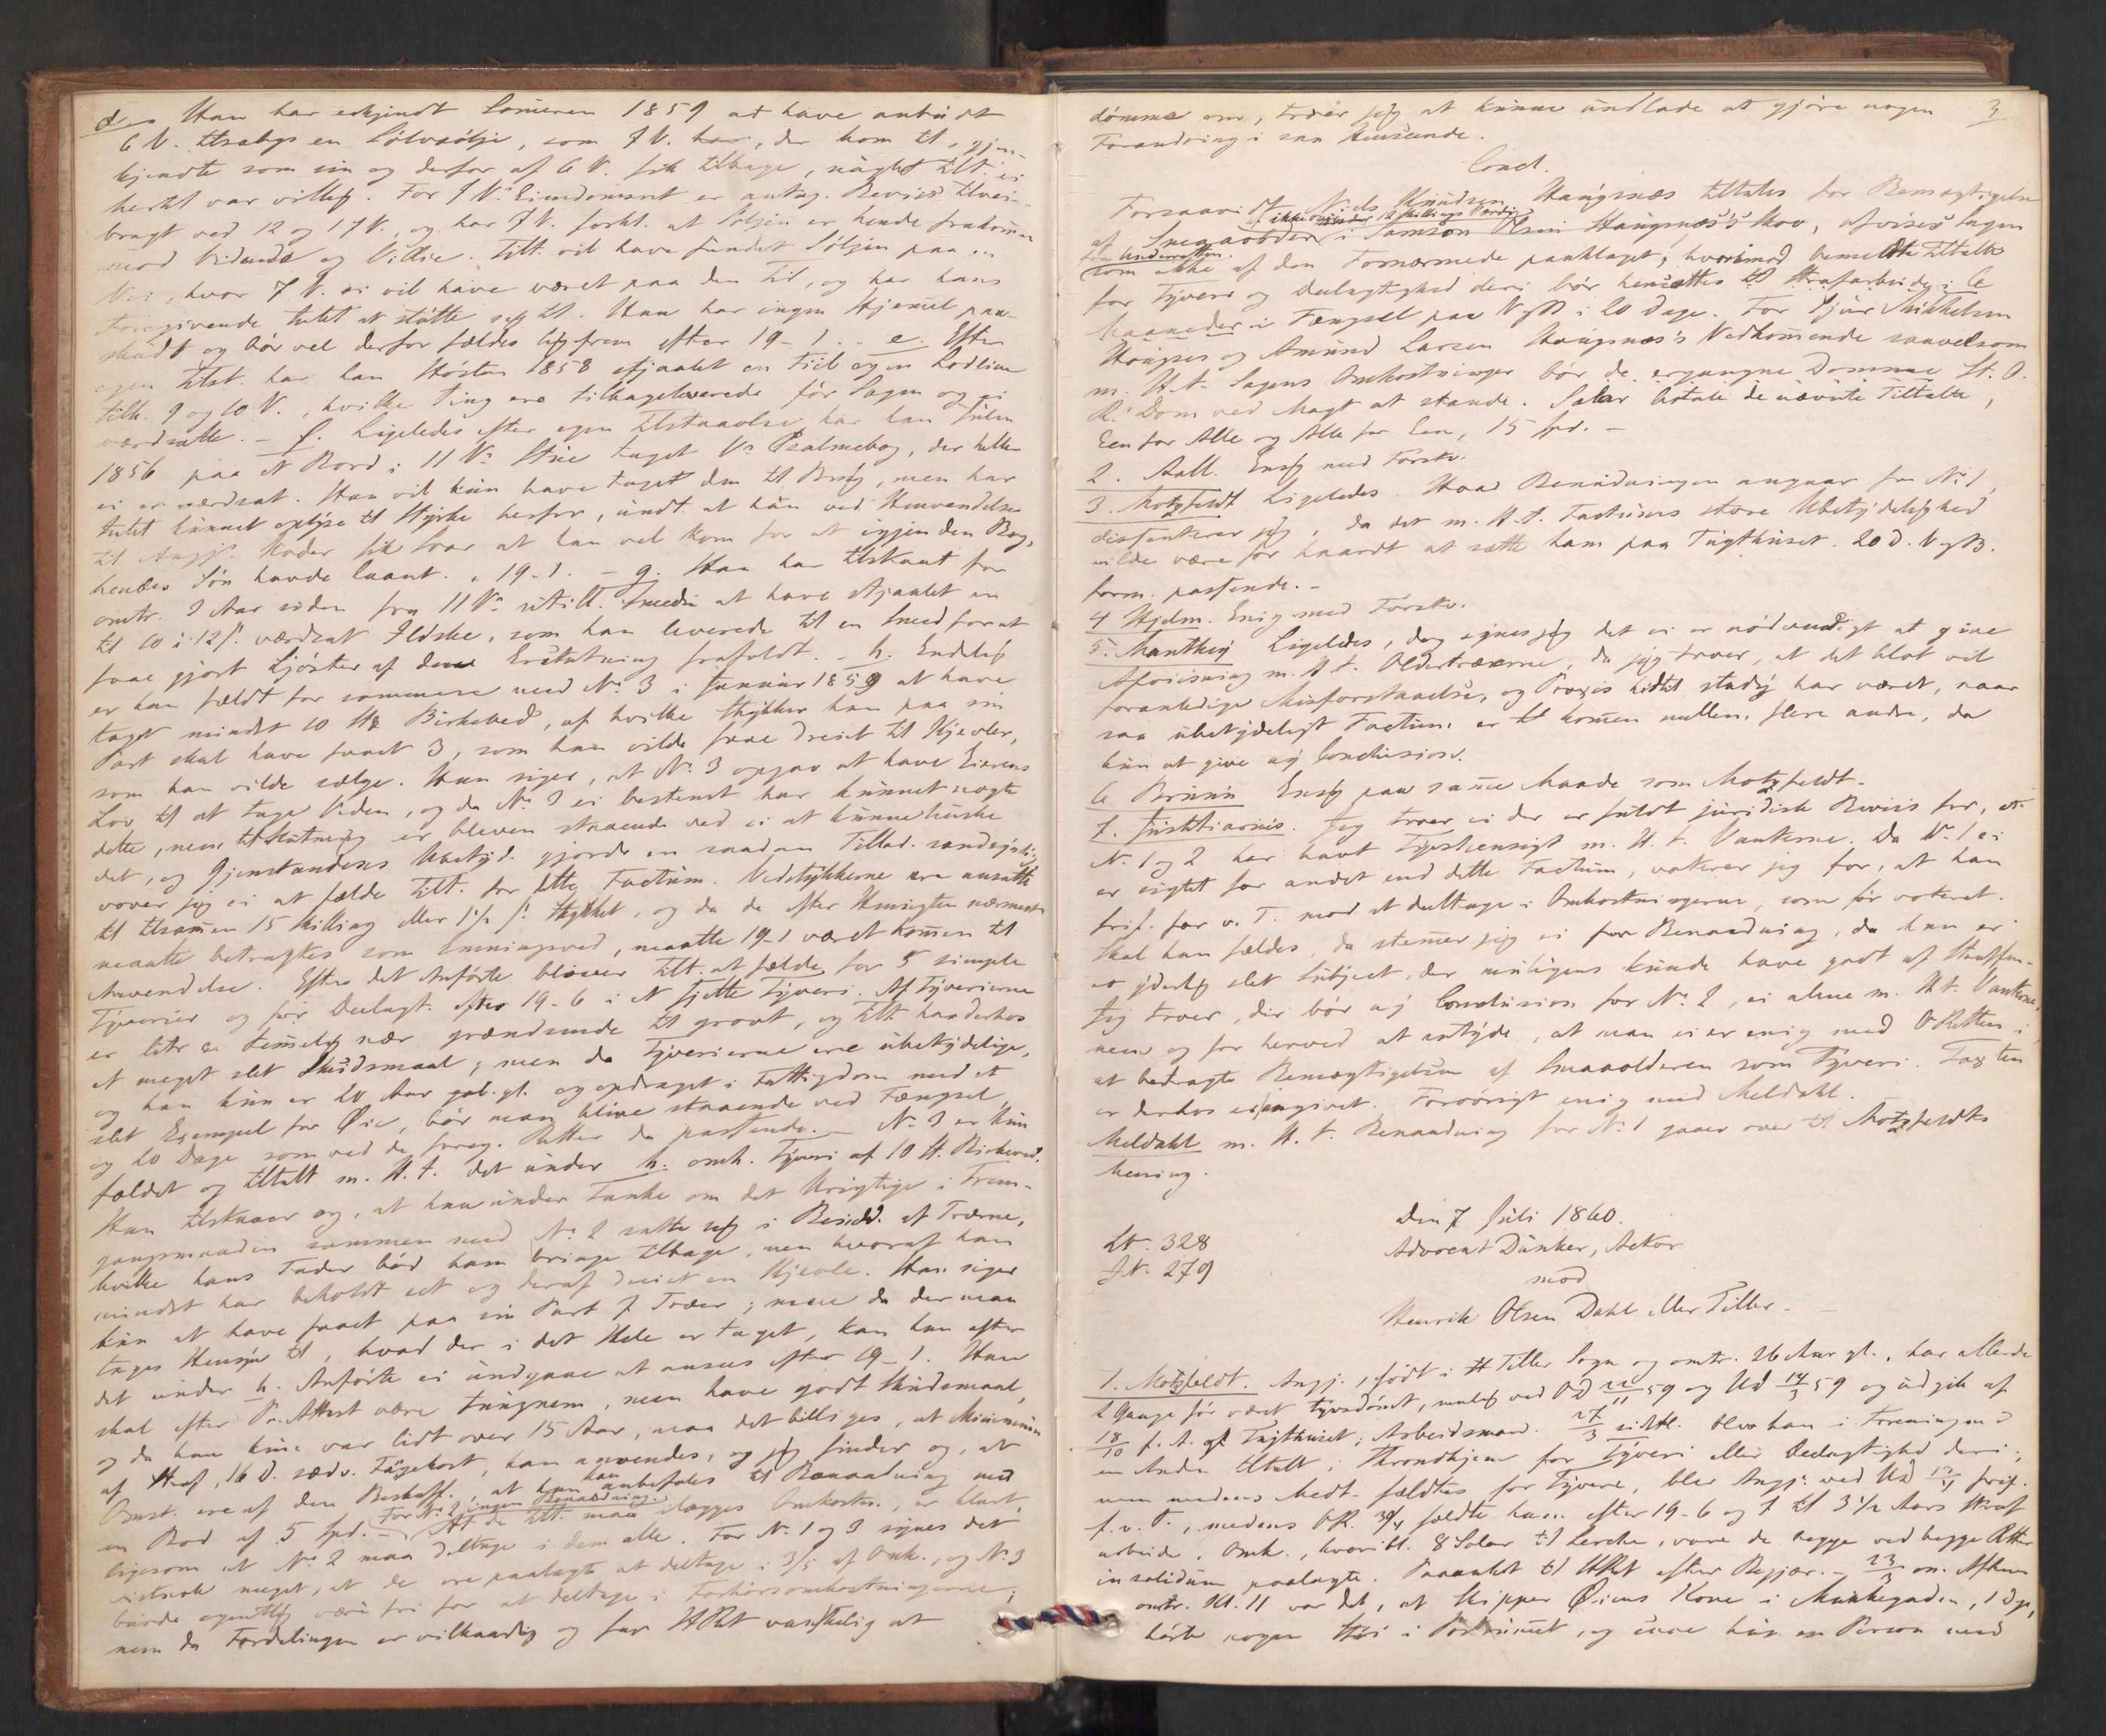 d. Han har erkjendt Someren 1859 at have anbudt
6 V. tilsalgs en Sølvsølje, som 7 V. har, der kom til, gjen-
kjendte som sin og derfor af 6 V. fik tilbage, uagtet Tilt. ei
hertil var villig. For 7 V.s Eiendomsret er antag. Beviis tilvei-
bragt ved 12 og 17 V., og har 7 V. forkl. at Søljen er hende frakommen
mod Vidende og Villie. Tilt. vil have fundet Søljen paa en
Vei, hvor 7 V. ei vil have været paa den Tid, og har hans
Foregivende intet at støtte sig til. Han har ingen Hjemmel paa-
skudt og bør vel derfor fældes ligefrem efter 19-1. - e. Efter
egen Tilst. har han Høsten 1858 stjaalet en Fiil og en Lodline
tilh. 9 og 10 V., hvilke Ting ere tilbageleverede før Sagen og ei
værdsatte. - f. Ligeledes efter egen Tilstaaelse har han Julen
1856 paa et Bord i 11 V.s Stue taget V.s Psalmebog, der heller
ei er værdsat. Han vil kun have taget den til Brug, men har
intet kunnet oplyse til Styrke herfor, undt. at han ved Henvendelse
til Angjs. Moder fik Svar at han vel kom for at igjen den Bog,
hendes Søn havde laant. 19-1. - g. Han har tilstaaet for
omtr. 3 Aar siden fra 11 V.s Smedie at have stjaalet en
til 10 à 12 ß. værdsat Ildske, som han leverede til en Smed for at
faae gjort Ljøster af den. Erstatning frafaldt. - h. Endelig
er han fældt for sammen med No. 3 i Januar 1859 at have
taget mindst 10 St. Birkeved, af hvilke Stykker han paa sin
Part skal have faaet 3, som han vilde faae dreiet til Kjevler,
som han vilde sælge. Han siger, at No. 3 opgav at have Eierens
Lov til at tage Veden, og da No. 3 ei bestemt har kunnet nægte
dette, men tilslutning er bleven staaende ved ei at kunne huske
det, og Gjenstandens Ubetyd. gjorde en saadan Tillad. sandsynlig,
vover jeg ei at fælde Tilt. for dette Factum. Vedstykkerne ere ansatte
til tilsammen 15 Skilling eller 1½ ß. Stykket, og da de efter Hensigten nærmest
maatte betragtes som Emningsved, maatte 19-1 været kommen til
Anvendelse. Efter det Anførte bliver Tilt. at fælde for 5 simple
Tyverier og for Deelagt. efter 19-6 i et sjette Tyveri. Af Tyverierne
er litr. a temmelig nær grændsende til grovt, og Tilt. har derhos
et meget slet Skudsmaal; men da Tyverierne ere ubetydelige,
og han kun er 20 Aar gl. og opdraget i Fattigdom med et
slet Exempel for Øie, bør man blive staaende ved Fængsel
og 20 Dage som ved de foreg. Retter da passende. - No. 3 er kun
fældet og tiltalt m. H. t. det under h. omh. Tyveri af 10 St. Birkeved.
Han tilstaaer og, at han under Tanke om det Urigtige i Frem-
gangsmaaden sammen med No. 2 satte sig i Besidd. af Træerne,
hvilke hans Fader bød ham bringe tilbage, men hvoraf han
mindst har beholdt eet og deraf dreiet en Kjevle. Han siger
kun at have faaet paa sin Part 7 Træer; men da der maa
tages Hensyn til, hvad der i det Hele er taget, kan han efter
det under h. Anførte ei undgaae at ansees efter 19-1. Han
skal efter Pr. Attest være tungnem, men have godt Skudsmaal,
og da han kun var lidt over 15 Aar, maa det billiges, at Minimum
af Straf, 16 D. sædv. Fangekost, ham anvendes, og jeg finder og, at
Omst. ere af den Beskaff., at han kan anbefales til Benaadning med
en Bod af 5 Spd. - For No. 2 ingen Benaadning. At de Tilt. maa ilægges Omkostn., er klart,
ligesom at No. 2 maa deltage i dem alle. For No. 1 og 3 synes det
vistnok meget, at de ere paalagte at deltage i 3/5 af Omk., og No. 3
burde egentlig være fri for at deltage i Forhørsomkostningerne;
men da Fordelingen er vilkaarlig og for HRet vanskelig at
dømme om, troer jeg at kunne undlade at gjøre nogen 3
Forandring i saa Henseende.
Concl.
Forsaavidt Niels Knudsen Haugsnæs tiltales for Bemægtigelse
af ikke over 12 Skillings Værdi
Smaaolder i Samson Olsen Haugsnæs's Skov, afvises Sagen
fra Underretten
som ikke af den Fornærmede paaklaget; hvorimod bemeldte Tiltalte
for Tyveri og Deelagtighed deri bør hensættes til Strafarbeide i 6
Maaneder i Fængsel paa V. og B. i 20 Dage. For Sjur Mikkelsen
Haugsnes og Amund Larsen Haugsnæs's Vedkommende saavelsom
m. H. t. Sagens Omkostninger bør de ergangne Domme St. O.
R.s Dom ved Magt at stande. Salær betale de nævnte Tiltalte,
Een for Alle og Alle for Een, 15 Spd. -
2. Aall. Enig med Førstv.
3. Motzfeldt Ligeledes. Hvad Benaadningen angaaer for No. 1
dissenterer jeg, da det m. H. t. Factums store Ubetydelighed
vilde være for haardt at sætte ham paa Tugthuset. 20 D. V. og B.
form. passende. -
4 Hjelm. Enig med Førstv.
5. Manthey Ligeledes, dog synes jeg det ei er nødvendigt at give
Afviisning m. H. t. Oldertræerne, da jeg troer, at det blot vil
foranledige Misforstaaelse, og Praxis hidtil stadig har været, naar
saa ubetydeligt Factum er til kommen mellem flere andre, da
kun at give ny Conclusion.
6 Brunn Enig paa samme Maade som Motzfeldt.
7. Justitiarius. Jeg troer ei der er fuldt juridisk Beviis for, at
No. 1 og 2 har havt Tyvshensigt m. H. t. Vanterne. Da No. 1 ei
er sigtet for andet end dette Factum, voterer jeg for, at han
frif. for v. T. mod at deeltage i Omkostningerne, som før voteret.
Skal han fældes, da stemmer jeg ei for Benaadning, da han er
et yderlig slet Subject, der muligens kunde have godt af Straffen.
Jeg troer, der bør ny Conclusion for No. 2, ei alene m. H. t. Vanterne,
men og for herved at antyde, at man ei er enig med ORetten i
at betragte Bemægtigelsen af Smaaolderen som Tyveri. Taxten
er derhos ei angivet. Forøvrigt enig med Meldahl.
Meldahl m. H. t. Benaadning for No. 1 gaaer over til Motzfeldts
Mening.
Den 7 Juli 1860.
Lb. 328
Advocat Dunker, Actor
J.N. 279
mod
Henrik Olsen Dahl eller Tiller. -
1. Motzfeldt. Angj., født i Tiller Sogn og omtr. 26 Aar gl., har allerede
2 Gange før været tyvsdømt, senest ved OD 22/11 59 og Ud 14/3 59 og udgik af
18/10 f. A. af Tugthuset; Arbeidsmand. 27/3 sidstl. blev han i Forening med
en Anden tiltalt i Throndhjem for Tyveri eller Deelagtighed deri;
men medens Medt. fældtes for Tyveri, blev Angj. ved Ud frif.
f. v. T., medens OR. 30/4 fældte ham efter 19-6 og 7 til 3½ Aars Straf-
arbeide. Omk., hvoribl. 8 Solar til Lerche, vare de begge ved begge Retter
in solidum paalagte. Paaanket til HRet efter Begjær. - 23/3 om Aftenen
omtr. Kl. 11 var det, at Skipper Øiens Kone i Munkegaden, 1 Dp,
hørte nogen Støi i Portrummet, og saae hun en Person med